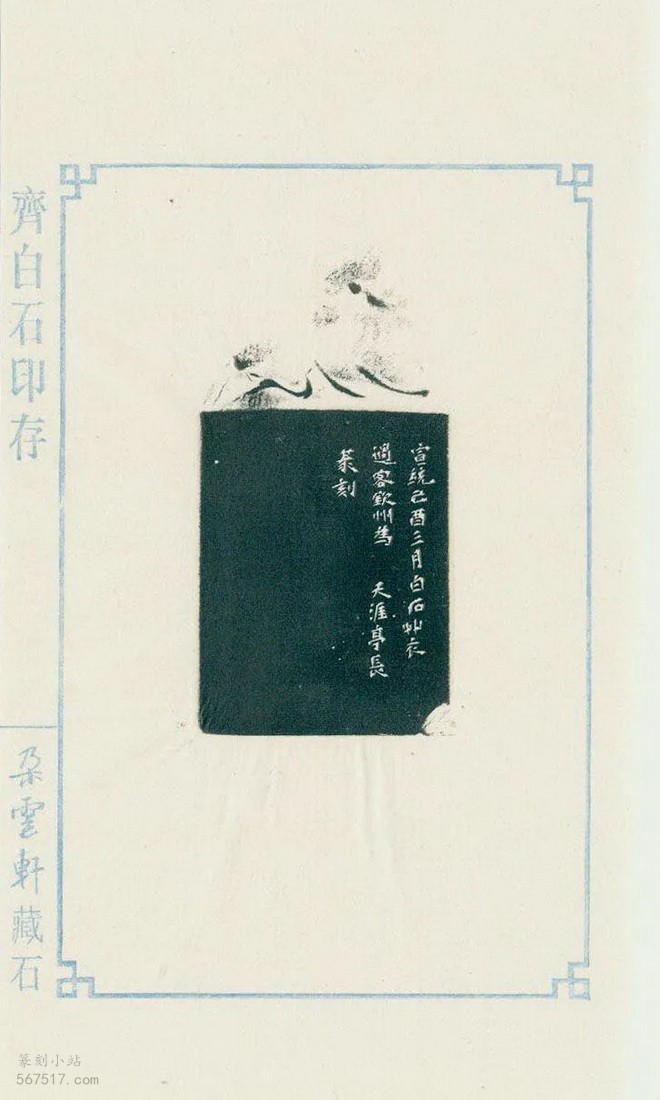 齊白石印存
朶雲軒藏石
宣統己酉三月白石艸衣
過客欽州為 天涯亭長
篆刻
篆刻小站
567517.com